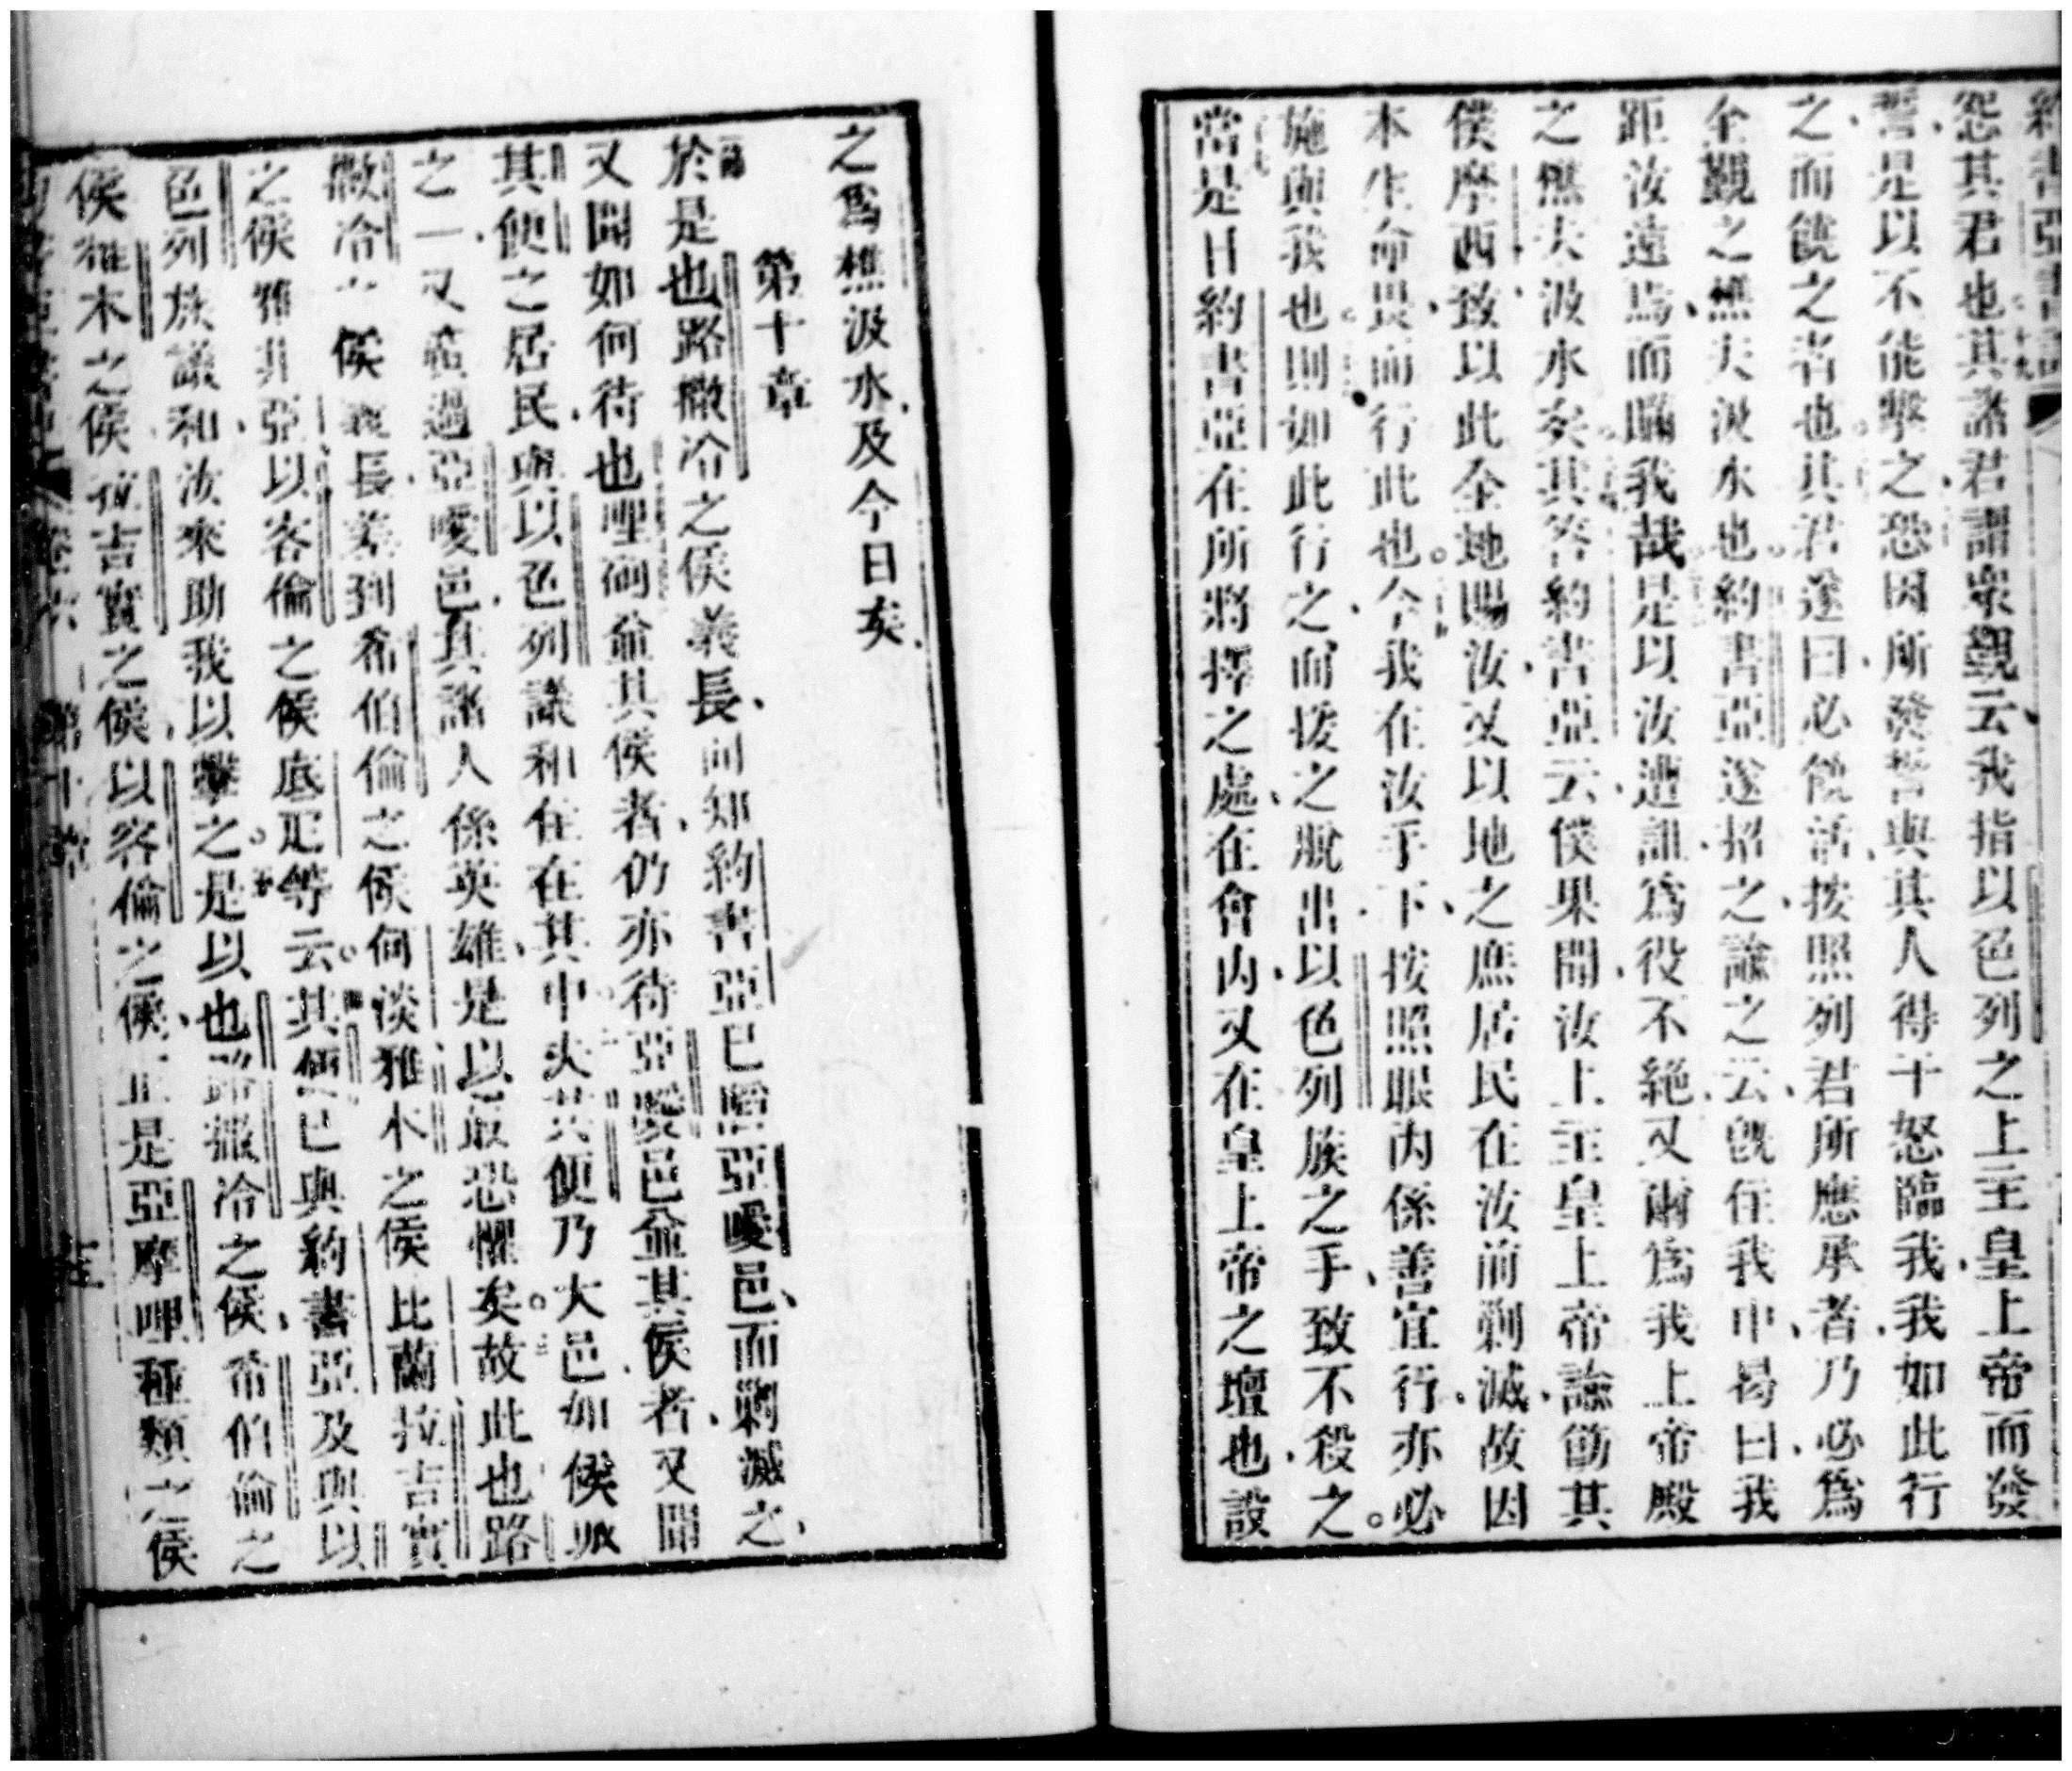 怨其君也其諸君謂衆觀云我指以色列之上主皇上帝而發
誓是以不能擊之恐因所發誓與其人得干怒臨我我如此行
之而饒之者也其君遂曰必饒活按照列君所應承者乃必爲
全觀之樵夫汲水也約書亞遂招之諭之云旣住我中曷曰我
距汝遠焉而瞞我哉是以汝遭詛爲役不絶又爾爲我上帝殿
之樵夫汲水矣其答約書亞云僕果聞汝上主皇上帝諭飭其
僕摩西致以此全地賜汝又以地之庶居民在汝前剿滅故因
本生命畏而行此也今我在汝手下按照眼內係善宜行亦必
施與我也則如此行之而拨之脫出以色列族之手致不殺之
當是日約書亞在所將擇之處在會內又在皇上帝之壇也設
之爲樵汲水及今日矣
第十章
於是也路撒冷之侯義長聞知約書亞已奪亞嗳邑而剿滅之
又聞如何待也哩𠵽並其侯者仍亦待亞嗳邑並其侯者又聞
其𠊧之居民與以色列議和住在其中夫其𠊧乃大邑如侯京
之一又在過亞嗳邑其諸人係英雄是以最恐懼矣故此也路
撒冷之侯義長差到希伯倫之侯何淡雅木之侯比蘭拉吉實
之侯雅非亞以客倫之侯底疋等云其𠊧已與約書亞及與以
色列族議和汝來助我以擊之是以也路撒冷之侯希伯倫之
侯雅木之侯拉吉實之侯以客倫之侯正是亞摩哩種類之侯
卷六
第十章